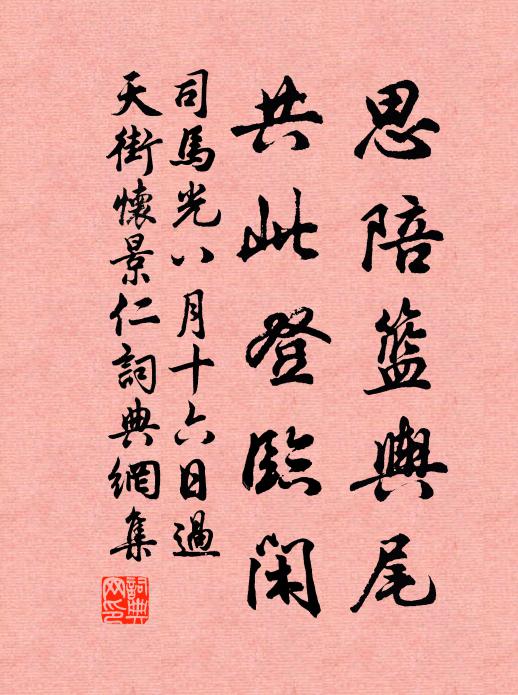 思陪籃輿尾
共此登臨閑
司馬光八月十六日過
天街懷景仁詞典網集
詞典網印